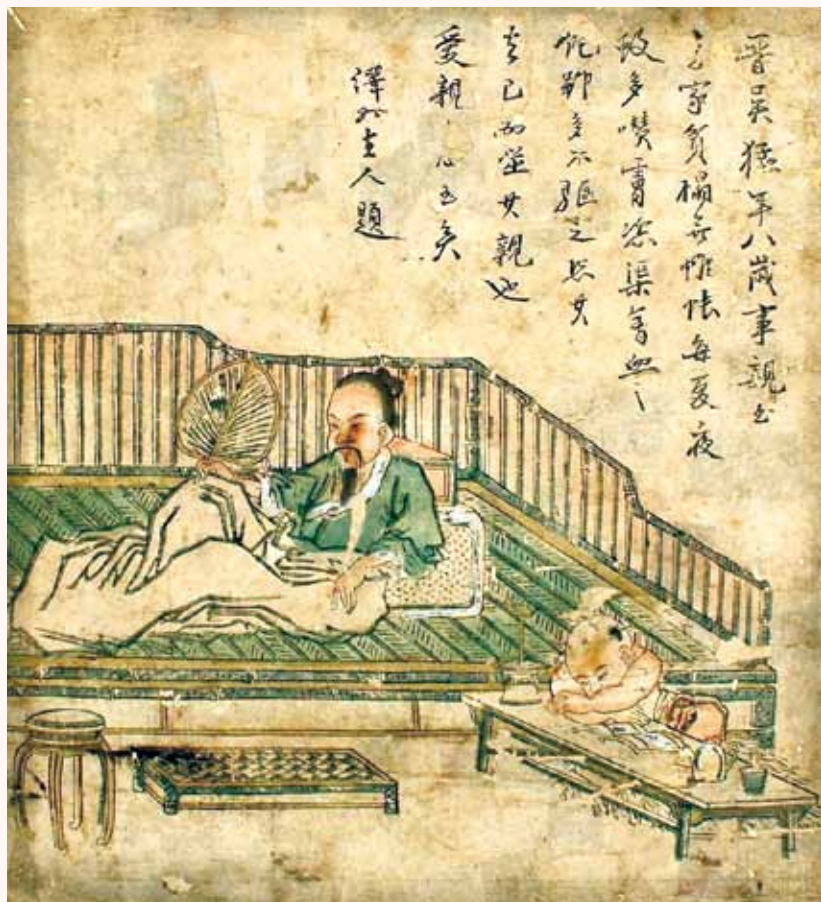 晉吳猛年八歲事親至
孝家貧榻無帷帳每夏夜
蚊多噆膚恣渠膏血之
飽雖多不驅之恐其
去己而噬其親也
愛親之心至矣
主人題